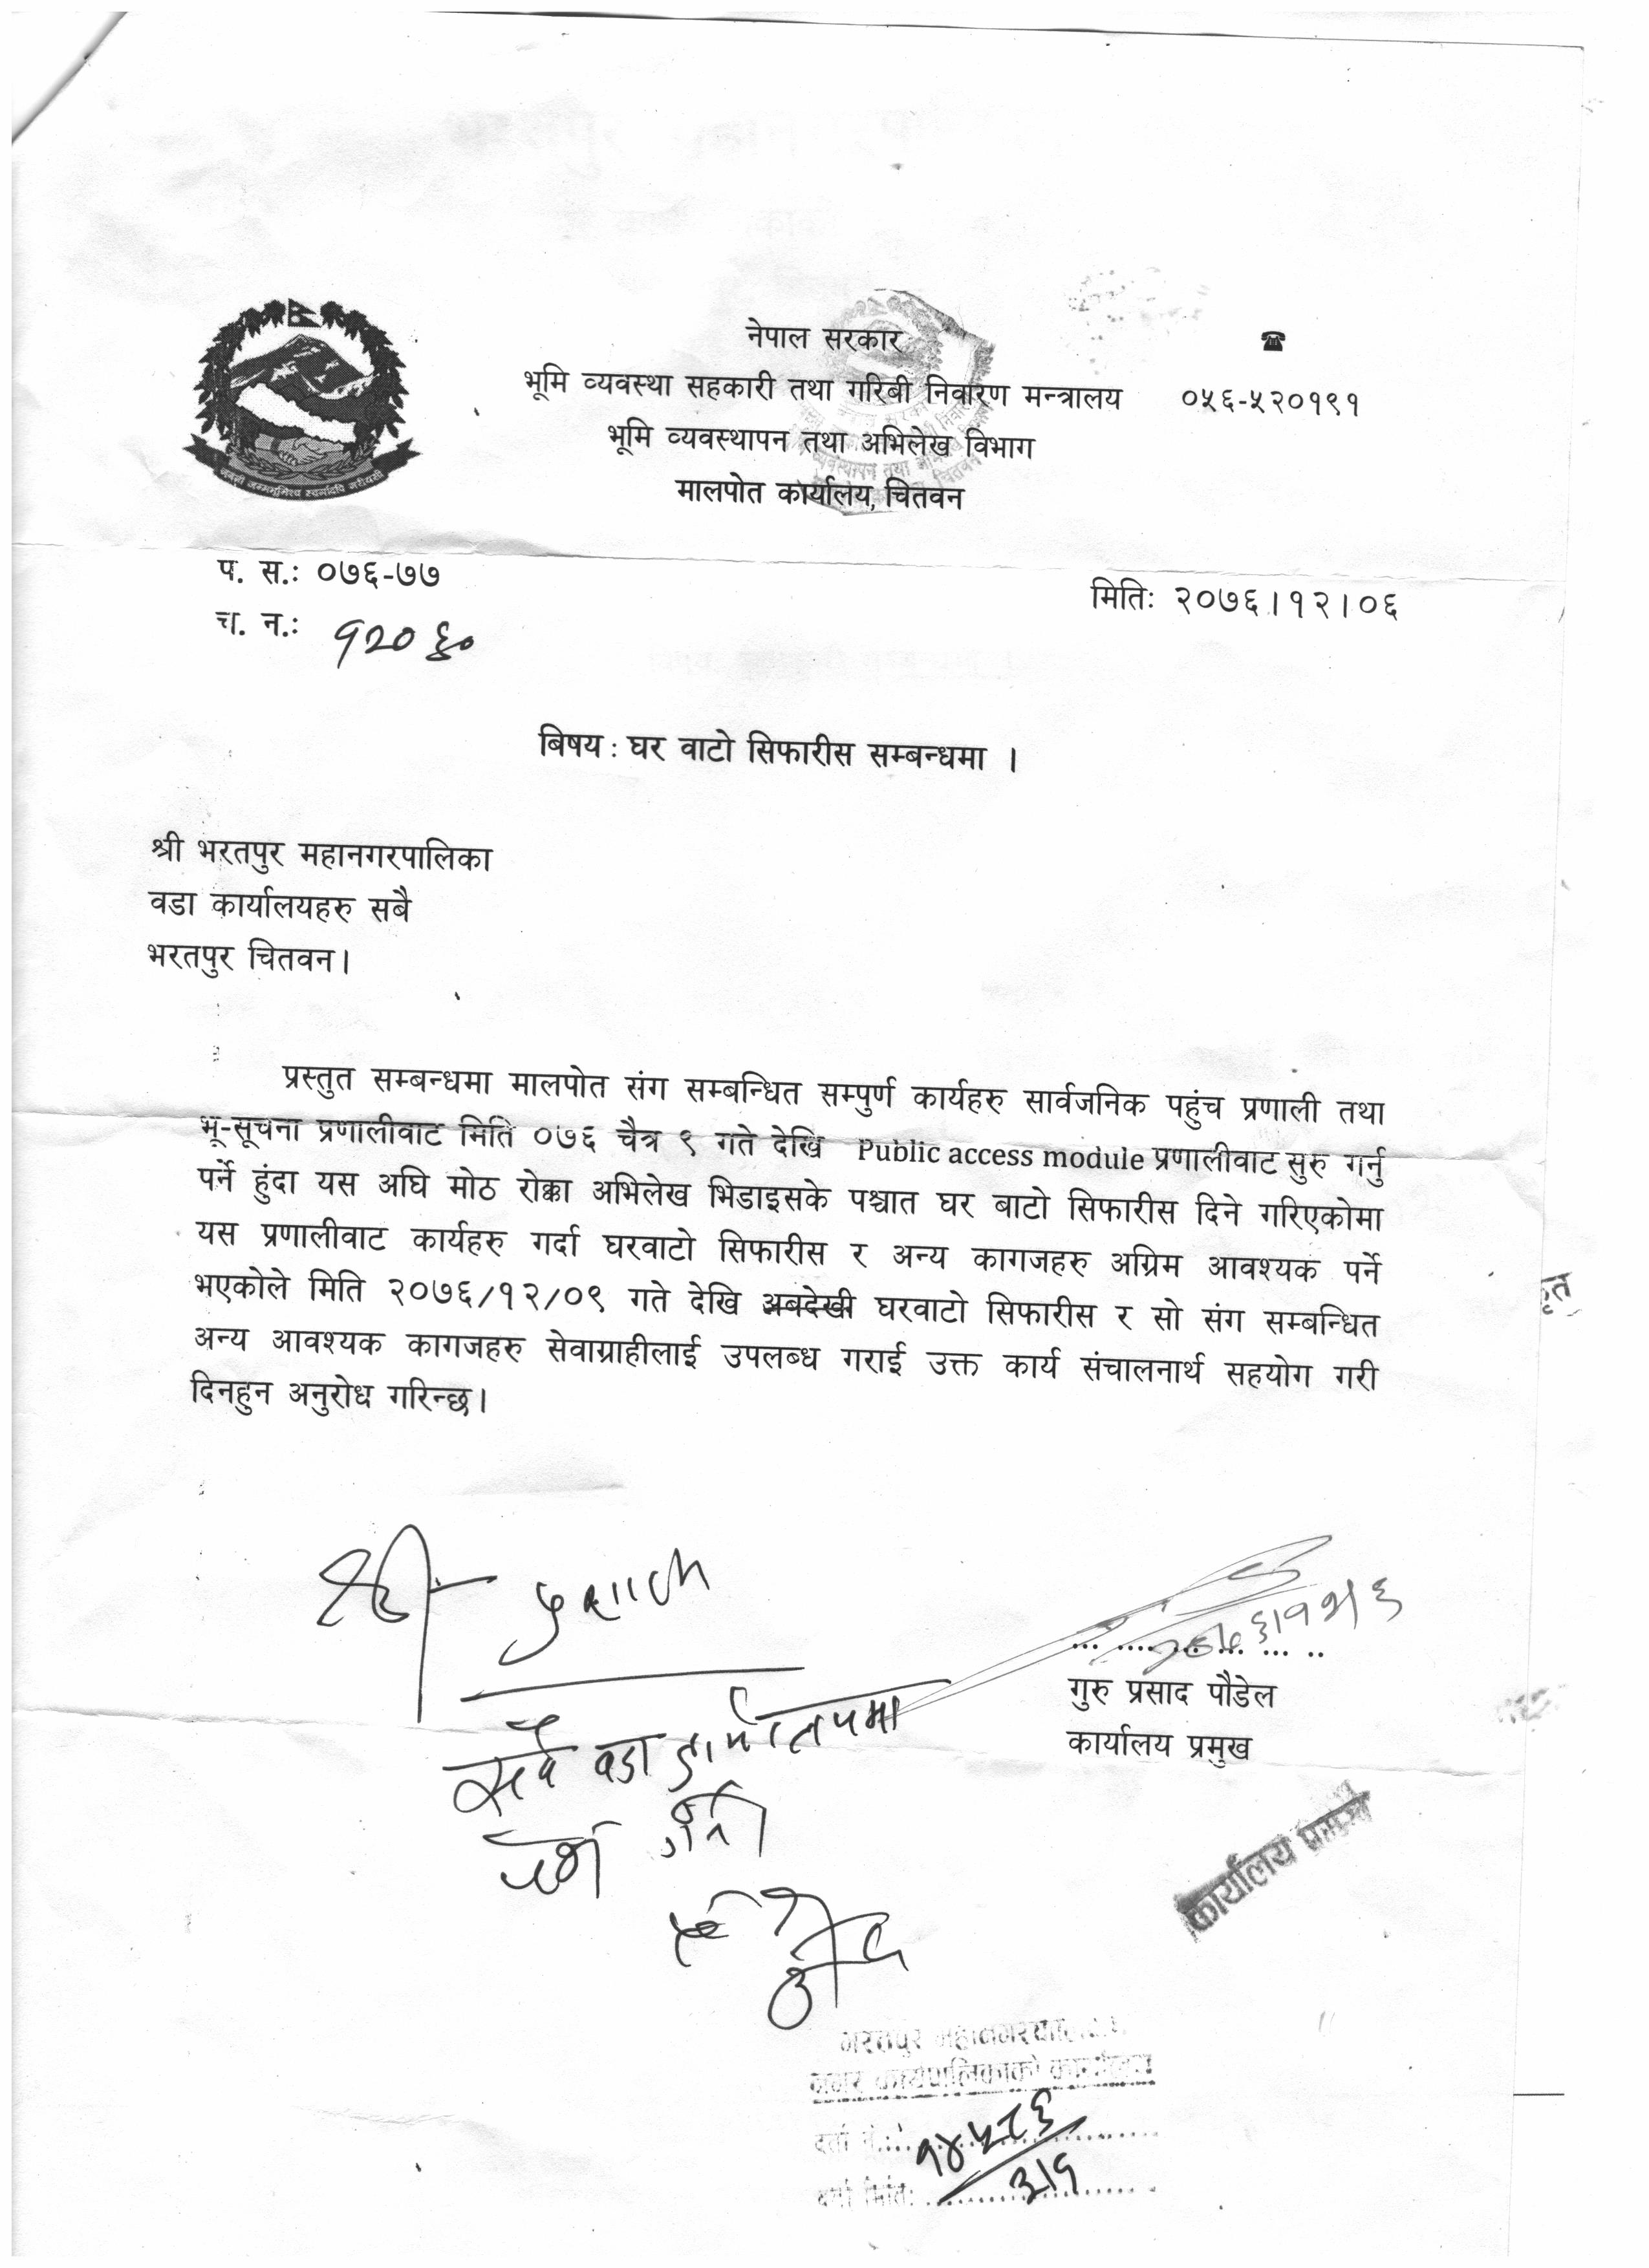 नेपाल सरकार
भूमि व्यवस्था सहकारी तथा गरिबी निवारण मन्त्रालय ०५६-५२०१९१
भूमि व्यवस्थापन तथा अभिलेख विभाग
मालपोत कार्यालय, चितवन
प. स.: ०७६-७७
मितिः २०७६।१२।०६
च. न.: १२०६०
बिषय : घर वाटो सिफारीस सम्बन्धमा ।
श्री भरतपुर महानगरपालिका
वडा कार्यालयहरु सबै
भरतपुर चितवन।
प्रस्तुत सम्बन्धमा मालपोत संग सम्बन्धित सम्पुर्ण कार्यहरु सार्वजनिक पहुंच प्रणाली तथा
भू-सूचना प्रणालीवाट मिति ०७६ चैत्र ९ गते देखि Public access module प्रणालीवाट सुरु गर्नु
पर्ने हुंदा यस अघि मोठ रोक्का अभिलेख भिडाइसके पश्चात घर बाटो सिफारीस दिने गरिएकोमा
यस प्रणालीवाट कार्यहरु गर्दा घरवाटो सिफारीस र अन्य कागजहरु अग्रिम आवश्यक पर्ने
भएकोले मिति २०७६/१२/०९ गते देखि अबदेखी घरवाटो सिफारीस र सो संग सम्बन्धित
अन्य आवश्यक कागजहरु सेवाग्राहीलाई उपलब्ध गराई उक्त कार्य संचालनार्थ सहयोग गरी
दिनहुन अनुरोध गरिन्छ।
श्री
गुरु प्रसाद पौडेल
कार्यालय प्रमुख
कार्यालय प्रमुख
भरतपुर महानगरपालिका
नगर कार्यपालिकाको कार्यालय
दर्ता नं.: १४५८६
दर्ता मिति: ३।९